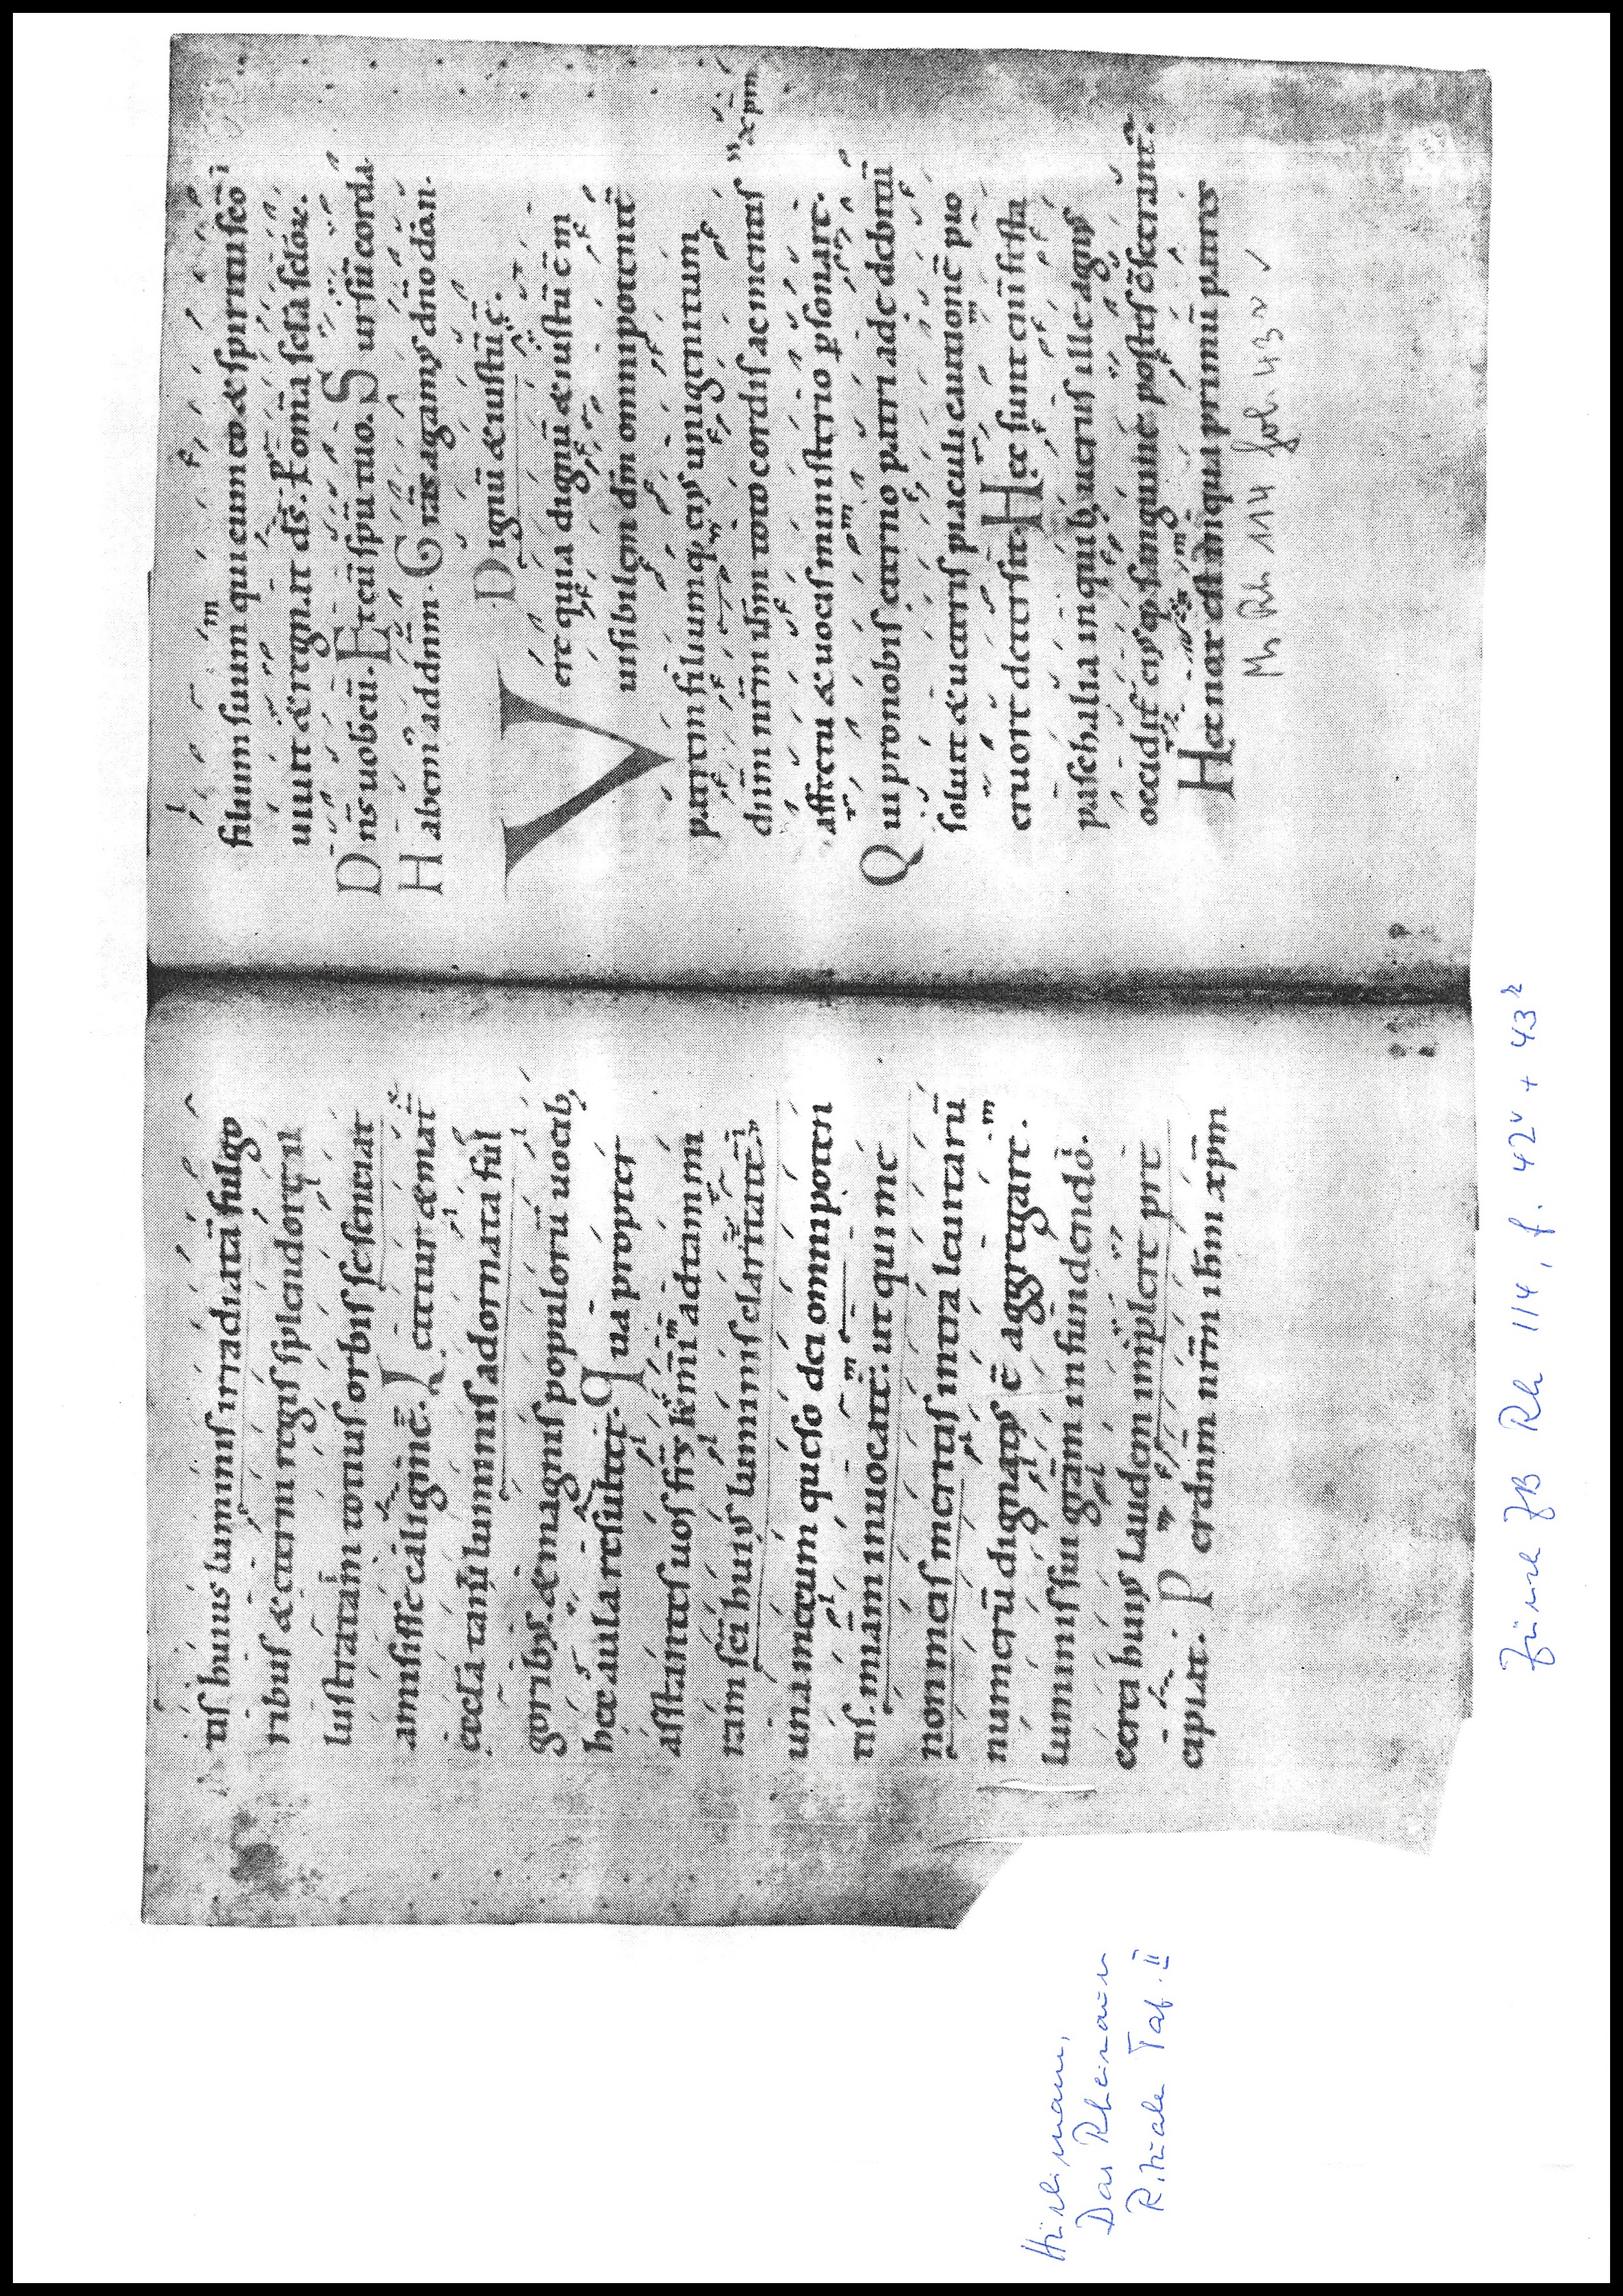 tis huius luminis irradiatā fulgo
ribus & ęterni regis splendore il
lustratam totius orbis se sentiat
amisisse caliginē. Letetur & mat̄
ęccla tanti luminis adornata ful
goribus. & magnis populorū uocib;
hęc aula resultet. Qua propter
astantes uos frs̄ kmī ad tam mi
ram sc̄i huius luminis claritatē.
una mecum queso dei omnipoten
tis. miam inuocate. ut qui me
non meis meritis intra leuitarū
numerū dignatus ē aggregare.
luminis sui grām infundendo.
cerei huius laudem implere pre
cipiat. P er dnm̄ nrm̄ ihm xpm
filium suum qui cum eo & spiritu scō
uiuit & regnat ds̄. P om̄a scl̄a sclōꝝ.
Dn̄s uobcū. Et cū spū tuo. S ursū corda.
Habem' ad dnm. Grās agamus dn̄o dō n.
Dignū & iustū ē.
V ere quia dignū & iustū ē in
uisibilem dm̄ omnipotentē
patrem filiumq; eius unigenitum
dnm̄ nrm̄ ihm xpm toto cordis ac mentis
affectu & uocis ministerio psonare.
Qui pro nobis ęterno patri adę debitū
soluit & ueteris piaculi cautionē pio
cruore detersit. Hęc sunt enī festa
paschalia in quib; uerus ille agnus
occidit̄ eiusq; sanguine postes c̄secrant̄.
Hęc nox est in qua primū patres
Ms Rh 114 fol. 43 v ✓
Zürich ZB Rh 114, f. 42v + 43r
Hürlimann,
Das Rheinauer
Rituale Taf. II